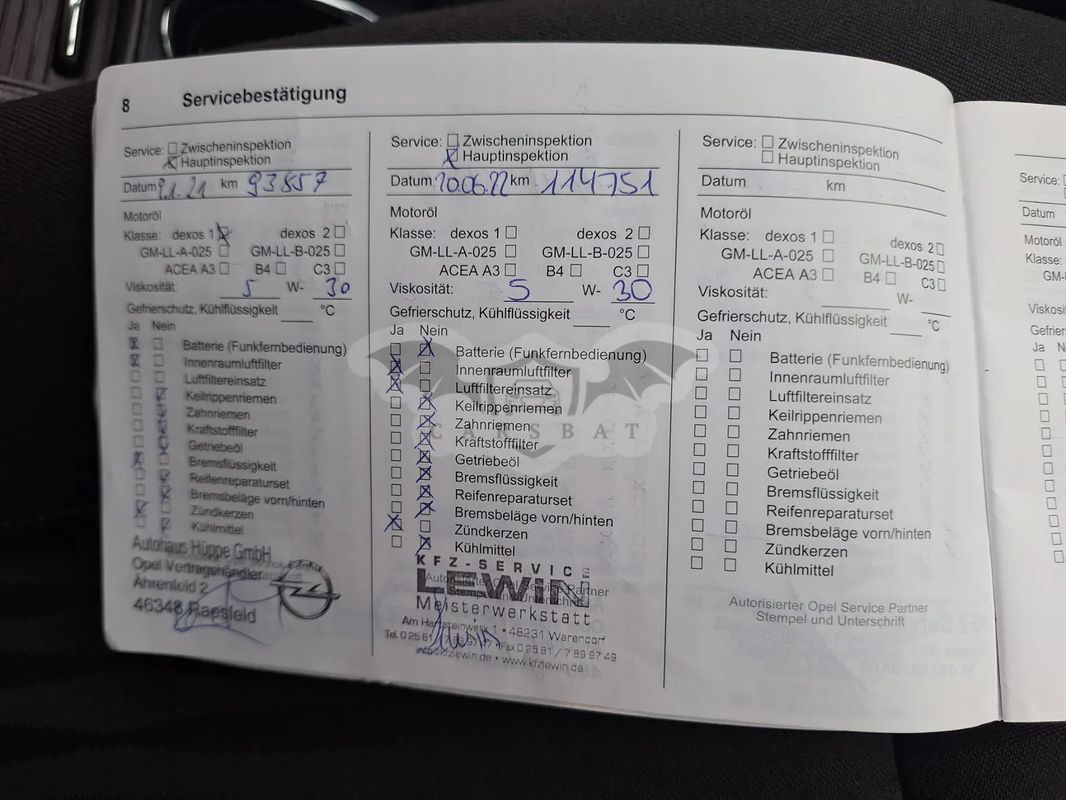 8 Servicebestätigung
Service: Zwischeninspektion
Hauptinspektion
Datum 9.1.21 km 93857
Motoröl
Klasse: dexos 1 dexos 2
GM-LL-A-025 GM-LL-B-025
ACEA A3 B4 C3
Viskosität: 5 W- 30
Gefrierschutz, Kühlflüssigkeit °C
Ja Nein
Batterie (Funkfernbedienung)
Innenraumluftfilter
Luftfiltereinsatz
Keilrippenriemen
Zahnriemen
Kraftstofffilter
Getriebeöl
Bremsflüssigkeit
Reifenreparaturset
Bremsbeläge vorn/hinten
Zündkerzen
Kühlmittel
Autohaus Hüppe GmbH
Opel Vertragshändler
Ahrenfeld 2
46348 Raesfeld
Service: Zwischeninspektion
Hauptinspektion
Datum 20.06.22 km 114751
Motoröl
Klasse: dexos 1 dexos 2
GM-LL-A-025 GM-LL-B-025
ACEA A3 B4 C3
Viskosität: 5 W- 30
Gefrierschutz, Kühlflüssigkeit °C
Ja Nein
Batterie (Funkfernbedienung)
Innenraumluftfilter
Luftfiltereinsatz
Keilrippenriemen
Zahnriemen
Kraftstofffilter
Getriebeöl
Bremsflüssigkeit
Reifenreparaturset
Bremsbeläge vorn/hinten
Zündkerzen
Kühlmittel
KFZ-SERVICE
LEWIN
Meisterwerkstatt
48231 Warendorf
info@kfzlewin.de • www.kfzlewin.de
Service: Zwischeninspektion
Hauptinspektion
Datum km
Motoröl
Klasse: dexos 1 dexos 2
GM-LL-A-025 GM-LL-B-025
ACEA A3 B4 C3
Viskosität: W-
Gefrierschutz, Kühlflüssigkeit °C
Ja Nein
Batterie (Funkfernbedienung)
Innenraumluftfilter
Luftfiltereinsatz
Keilrippenriemen
Zahnriemen
Kraftstofffilter
Getriebeöl
Bremsflüssigkeit
Reifenreparaturset
Bremsbeläge vorn/hinten
Zündkerzen
Kühlmittel
Autorisierter Opel Service Partner
Stempel und Unterschrift
Service:
Datum
Motoröl
Klasse:
Ja Nein
CARSBAT